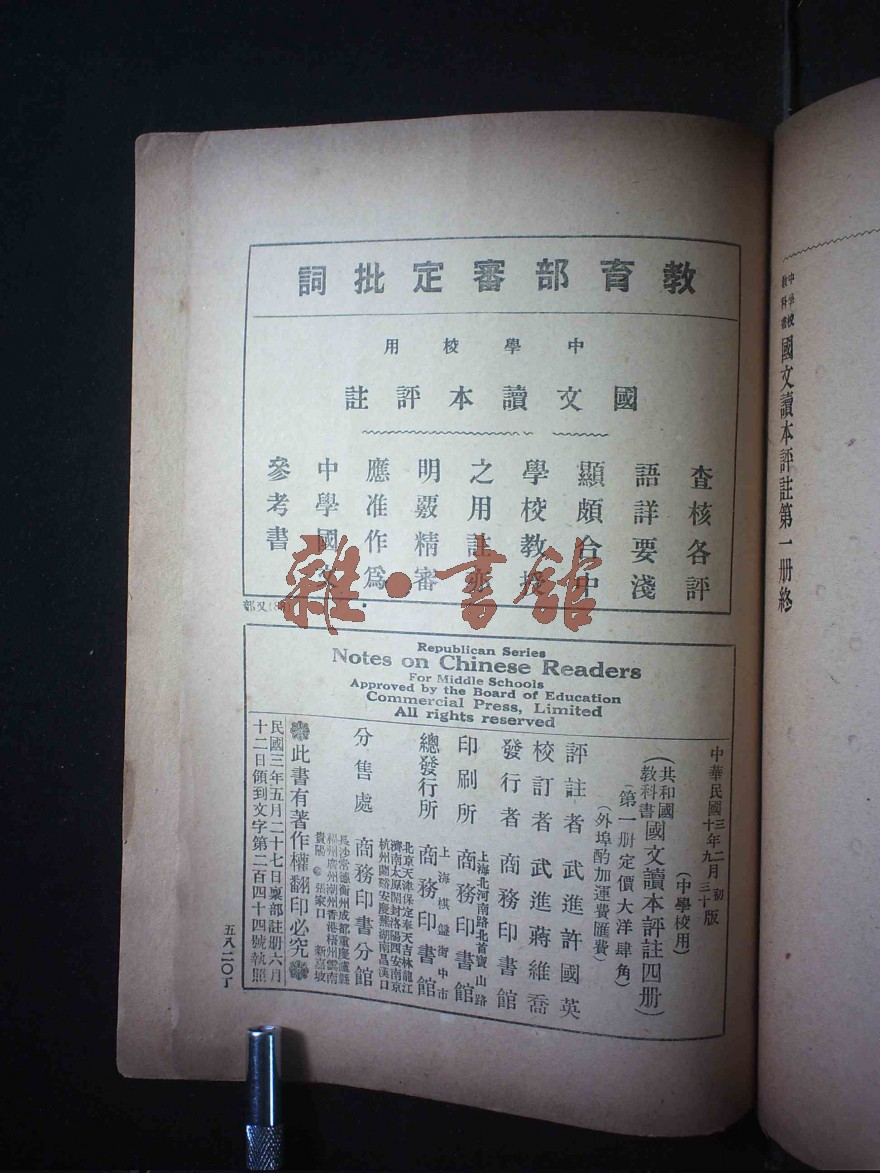 教育部審定批詞
中學校用
國文讀本評註
查核各評
語詳要淺
顯頗合中
學校教授
之用註亦
明覈精審
應准作爲
中學國文
參考書
雜·書館
Republican Series
Notes on Chinese Readers
For Middle Schools
Approved by the Board of Education
Commercial Press, Limited
All rights reserved
中華民國三年二月初版
十年九月三十版
(中學校用)
(共和國教科書國文讀本評註四册)
(第一册定價大洋肆角)
(外埠酌加運費匯費)
評註者 武進許國英
校訂者 武進蔣維喬
發行者 商務印書館
印刷所 上海北河南路北首寶山路 商務印書館
總發行所 上海棋盤街中市 商務印書館
分售處
北京天津保定奉天吉林龍江
濟南太原開封洛陽西安南京
杭州蘭谿安慶蕪湖南昌漢口
商務印書分館
長沙常德衡州成都重慶瀘縣
福州廣州潮州香港梧州雲南
貴陽 張家口 新嘉坡
此書有著作權翻印必究
民國三年五月二十七日稟部註册六月
十二日領到文字第二百四十四號執照
五八二〇丁
中學校教科書國文讀本評註第一册終